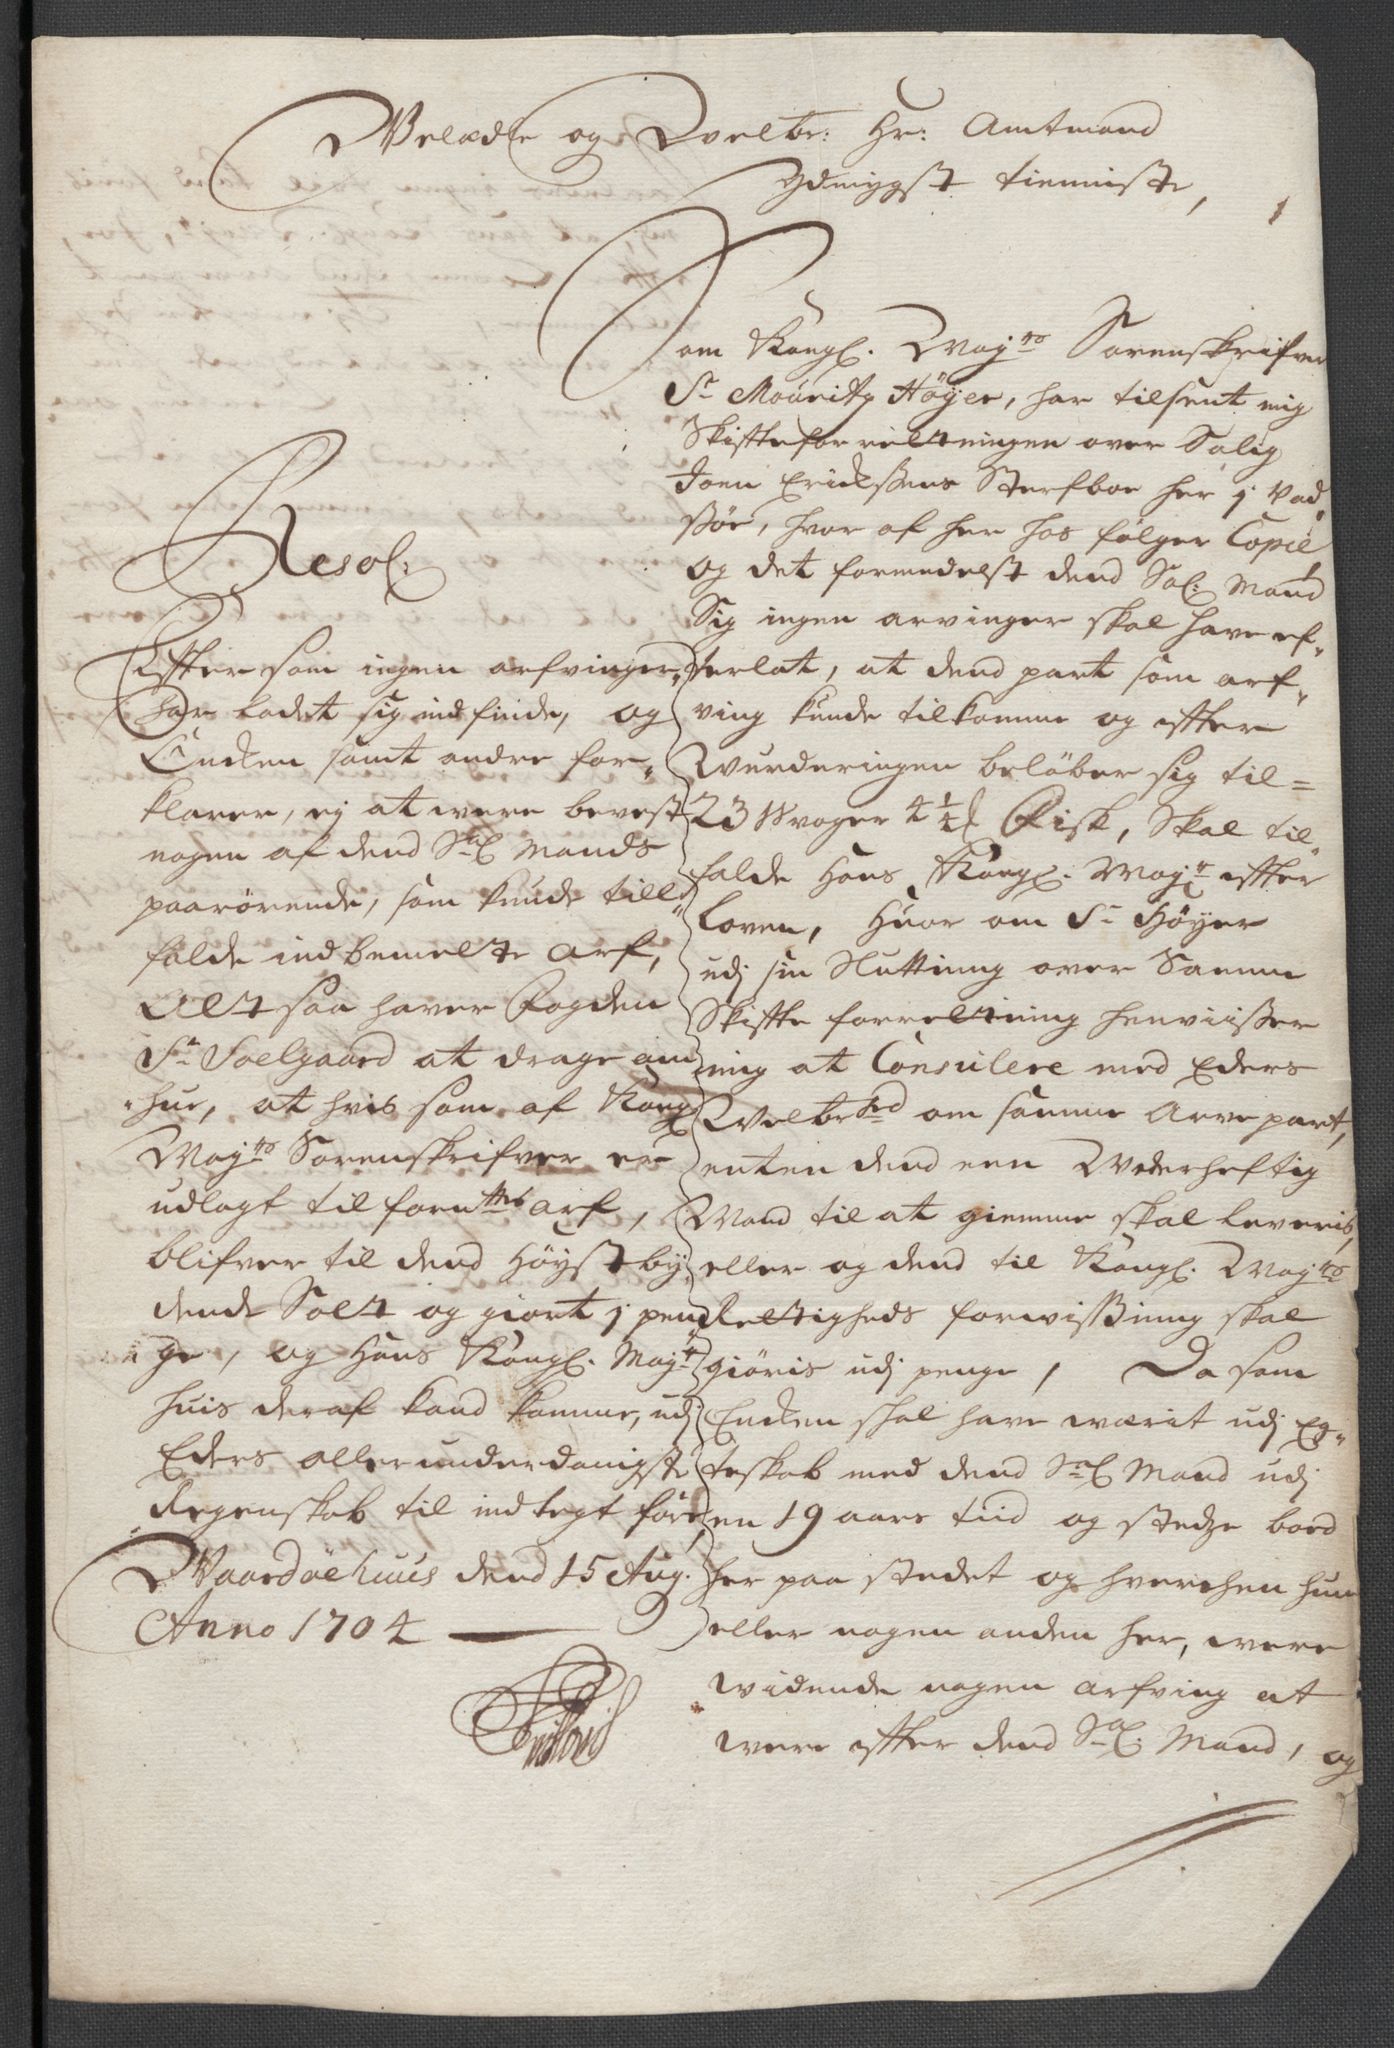 Velædle og Velbr: Hr: Amtmand
Ydmygst tienniste,
Som Kongl. Mayts Sorenskrifver
Sr Mouritz Höyer, har tilsent mig
Skifteforretningen over Salig
Joen Ericksens Sterfboe her j Vad„
søe, hvor af her hos fölger Copie,
og det formedelst dend Sal: Mand
Sig ingen arvinger skal have ef„
terlat, at dend part som arf„
ving kunde tilkomme og efter
Wurderingen belöber sig til=
23 Woger 4½ Fisk, Skal til„
falde Hans Kongl. Mayt efter
Loven, Huor om Sr Höyer
udj sin Slutning over Samme
Skifte forretning henviisser
mig at Consulere med Eders
Velbrhed om samme Arve part,
enten dend een Wederheftig
Mand til at giemme skal leveris,
eller og dend til Kongl. Mayts
Rettigheds forvissning skal
giöris udj penge, Da som
Encken skal have wærit udj Eg„
teskab med dend Sal Mand udj
en 19 aars tiid og stedze boed
her paa stedet og hverchen hun
eller nogen anden her, were
widende nogen arfving at
were efter dend Sal. Mand, og
Resol:
Efter som ingen arfvinger
har ladet sig indfinde, og
Encken samt andre for„
klarer, ej at were bevest
nogen af dend Sal Mands
paarörende, som kunde till„
falde indbemelte Arf,
Alt saa haver Fogden
Sr Soelgaard at drage om„
hue, at hvis som af Kongl
Mayts Sorenskrifver er
udlagt til fornte arf,
blifver til dend Höystby„
dende Solt og giort j pen„
ge, og Hans Kongl. Mayt
huis deraf kand komme, udj
Eders allerunderdanigste
Regenskab til indtegt före,
Waardöehuus dend 15 Aug.
Anno 1704